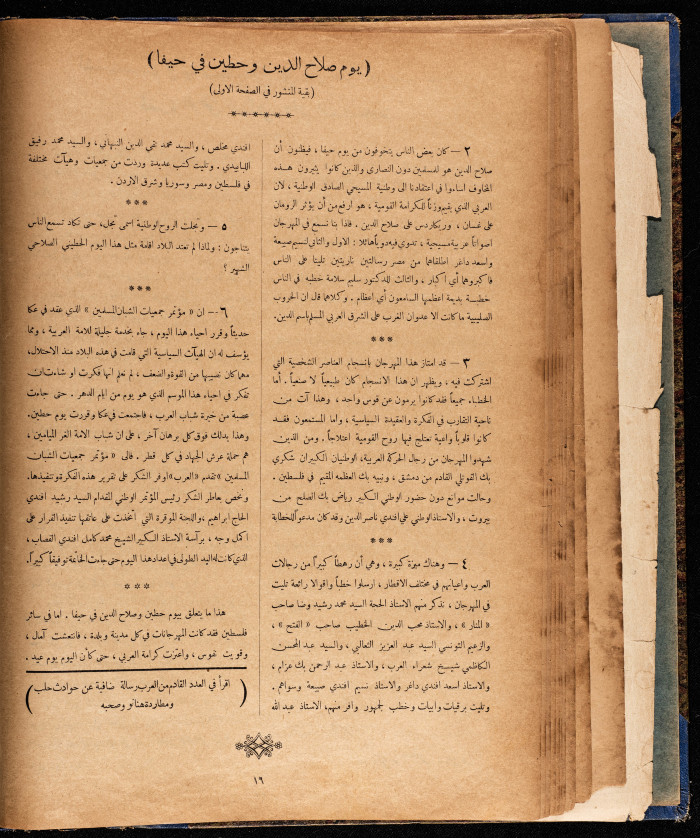 ( يوم صلاح الدين وحطين في حيفا )
(بقية المنشور في الصفحة الاولى)
٢ – كان بعض الناس يتخوفون من يوم حيفا ، فيظنون أن
صلاح الدين هو للمسلمين دون النصارى والذين كانوا يثيرون هذه
المخاوف اساءوا في اعتقادنا الى وطنية المسيحي الصادق الوطنية ، لان
العربي الذي يقيم وزناً للكرامة القومية ، هو ارفع من أن يؤثر الرومان
على غسان ، وريكاردس على صلاح الدين . فاذا بنا نسمع في المهرجان
اصواتاً عربية مسيحية ، تدوي فيه دوياً هائلا : الاول والثاني لنسيم صيبعة
واسعد داغر اطلقاهما من مصر رسالتين ناريتين تليتا على الناس
فاكبروهما أي اكبار ، والثالث للدكتور سليم سلامة خطبه في الناس
خطبة بديعة اعظمها السامعون أي اعظام . وكلاهما قال ان الحروب
الصليبية ما كانت الا عدوان الغرب على الشرق العربي المسلم باسم الدين.
***
٣ – قد امتاز هذا المهرجان بانسجام العناصر الشخصية التي
اشتركت فيه ، ويظهر ان هذا الانسجام كان طبيعياً لا صنعياً . أما
الخطباء جميعاً فقد كانوا يرمون عن قوس واحد ، وهذا آت من
ناحية التقارب في الفكرة والعقيدة السياسية ، واما المستمعون فقد
كانوا قلوباً واعية تعتلج فيها روح القومية اعتلاجاً . ومن الذين
شهدوا المهرجان من رجال الحركة العربية، الوطنيان الكبيران شكري
بك القوتلي القادم من دمشق ، ونبيه بك العظمه المقيم في فلسطين .
وحالت موانع دون حضور الوطني الكبير رياض بك الصلح من
بيروت ، والاستاذ الوطني علي افندي ناصر الدين وقد كان مدعواً للخطابة
***
٤ – وهناك ميزة كبيرة ، وهي أن رهطاً كبيراً من رجالات
العرب واعيانهم في مختلف الاقطار ، ارسلوا خطباً واقوالا رائعة تليت
في المهرجان ، نذكر منهم الاستاذ الحجة السيد محمد رشيد رضا صاحب
« المنار » ، والاستاذ محب الدين الخطيب صاحب « الفتح » ،
والزعيم التونسي السيد عبد العزيز الثعالبي ، والسيد عبد المحسن
الكاظمي شيخ شعراء العرب ، والاستاذ عبد الرحمن بك عزام ،
والاستاذ اسعد افندي داغر والاستاذ نسيم افندي صيبعة وسواهم .
وتليت برقيات وابيات وخطب لجمهور وافر منهم، الاستاذ عبد الله
افندي مخلص ، والسيد محمد تقي الدين النبهاني ، والسيد محمد رفيق
اللبابيدي . وتليت كتب عديدة وردت من جمعيات وهيآت مختلفة
في فلسطين ومصر وسوريا وشرق الاردن .
***
٥ – وتجلت الروح الوطنية اسمى تجل، حتى تكاد تسمع الناس
يتناجون : ولماذا لم تعتد البلاد اقامة مثل هذا اليوم الحطيني الصلاحي
الشهير ؟
***
٦ – ان « مؤتمر جمعيات الشبان المسلمين » الذي عقد في عكا
حديثاً وقرر احياء هذا اليوم ، جاء بخدمة جليلة للامة العربية ، ومما
يؤسف له ان الهيآت السياسية التي قامت في هذه البلاد منذ الاحتلال،
مهما كان نصيبها من القوة والضعف ، لم نعلم انها فكرت او شاءت ان
تفكر في احياء هذا الموسم الذي هو يوم من ايام الدهر . حتى جاءت
عصبة من خيرة شباب العرب ، فاجتمعت في عكا وقررت يوم حطين.
وهذا يدلك فوق كل برهان آخر ، على ان شباب الامة الغر الميامين،
هم حملة عرش الجهاد في كل قطر . فالى « مؤتمر جمعيات الشبان
المسلمين » تقدم «العرب» اوفر الشكر على تقرير هذه الفكرة وتنفيذها.
وتخص بعاطر الشكر رئيس المؤتمر الوطني المقدام السيد رشيد افندي
الحاج ابراهيم ، واللجنة الموقرة التي أخذت على عاتقها تنفيذ القرار على
اكمل وجه ، برآسة الاستاذ الكبير الشيخ محمد كامل افندي القصاب ،
الذي كانت له اليد الطولى في اعداد هذا اليوم حتى جاءت الخاتمة توفيقاً كبيراً.
***
هذا ما يتعلق بيوم حطين وصلاح الدين في حيفا . اما في سائر
فلسطين فقد كانت المهرجانات في كل مدينة وبلدة ، فانتعشت آمال ،
وقويت نفوس ، واعتزت كرامة العربي ، حتى كأن اليوم يوم عيد .
( اقرأ في العدد القادم من العرب رسالة ضافية عن حوادث حلب
ومطاردة هنانو وصحبه )
١٦